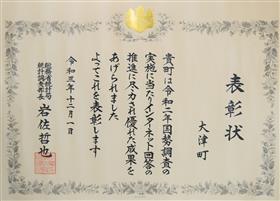 表彰状
大津町
貴町は令和二年国勢調査の
実施に当たりインターネット回答の
推進に尽力され優れた成果を
あげられました
よってこれを表彰します
令和三年十二月一日
総務省統計局
統計調査部長
岩佐哲也